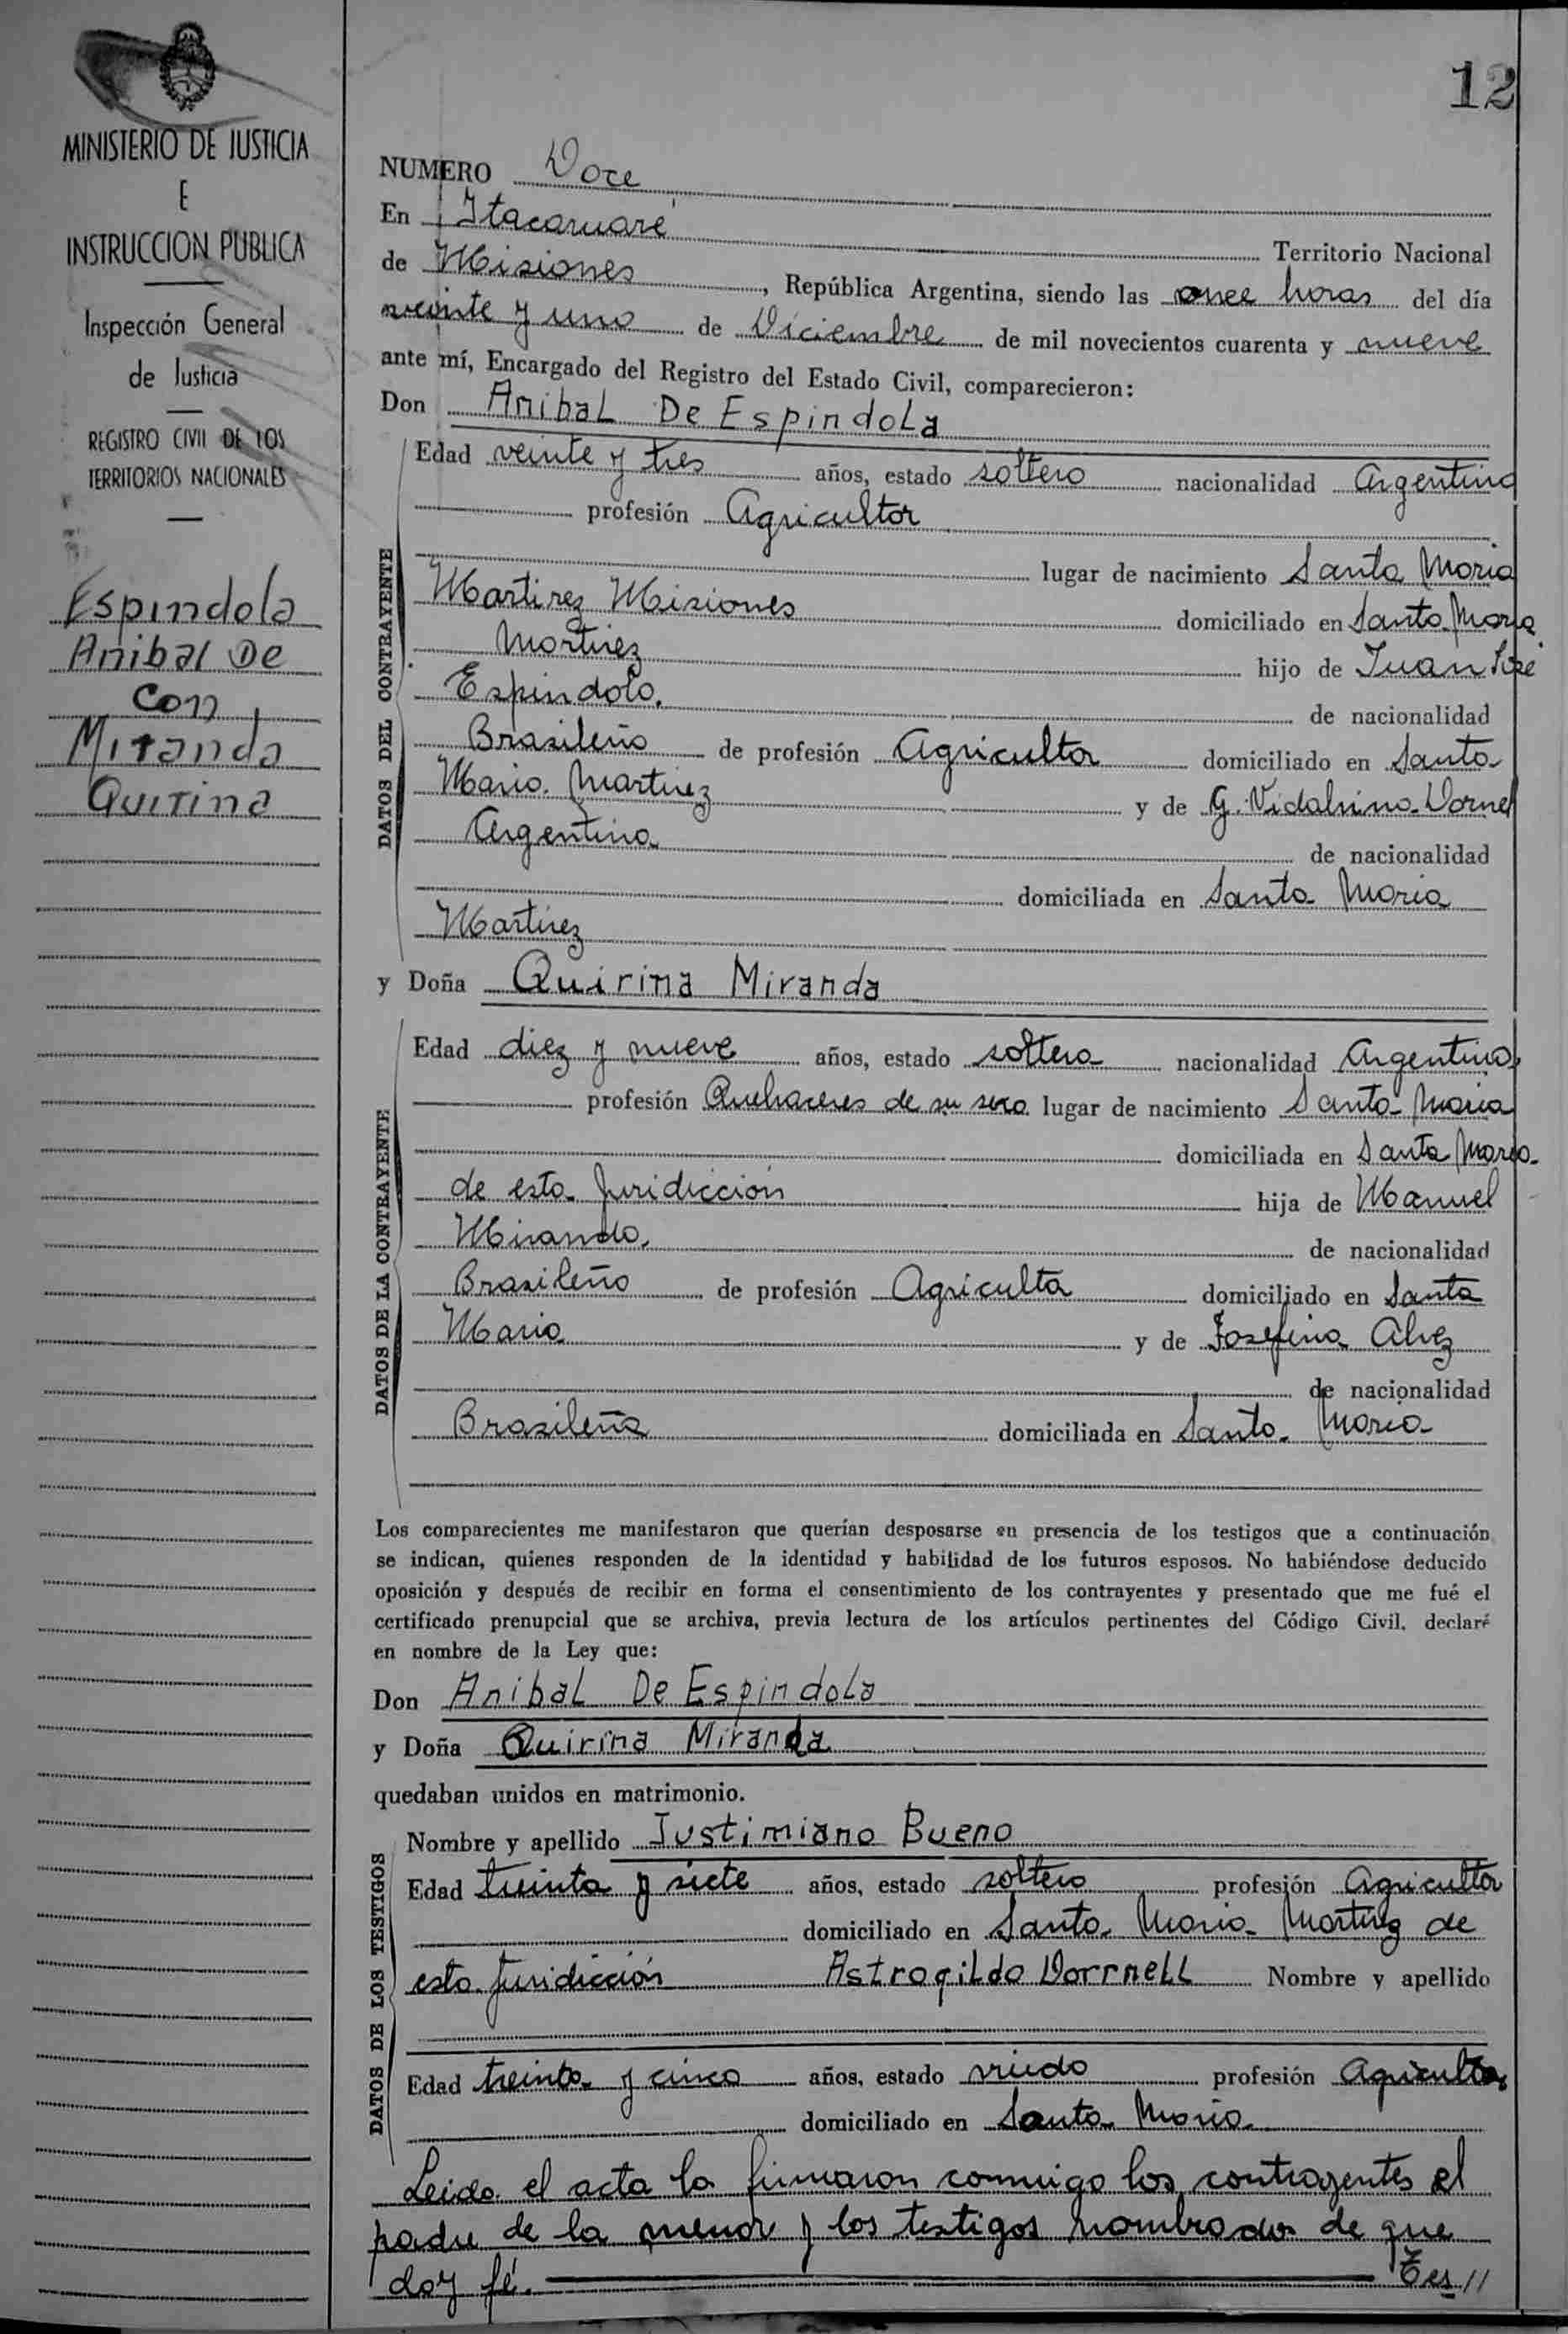 MINISTERIO DE JUSTICIA
E
INSTRUCCION PUBLICA
Inspección General
de Justicia
REGISTRO CIVIL DE LOS
TERRITORIOS NACIONALES
Espindola
Anibal De
con
Miranda
Quirina
12
NUMERO Doce
En Itacaruaré Territorio Nacional
de Misiones, República Argentina, siendo las once horas del día
veinte y uno de Diciembre de mil novecientos cuarenta y nueve
ante mí, Encargado del Registro del Estado Civil, comparecieron:
Don Anibal De Espindola
DATOS DEL CONTRAYENTE
Edad veinte y tres años, estado soltero nacionalidad Argentino
profesión Agricultor
lugar de nacimiento Santa Maria
Martirez Misiones domiciliado en Santa Maria
Martirez hijo de Juan José
Espindola. de nacionalidad
Brasileño de profesión Agricultor domiciliado en Santa
Maria Martirez y de G. Vidalvina Dornel
Argentina de nacionalidad
domiciliada en Santa Maria
Martirez
y Doña Quirina Miranda
DATOS DE LA CONTRAYENTE
Edad diez y nueve años, estado soltera nacionalidad Argentina
profesión Quehaceres de su sexo lugar de nacimiento Santa Maria
domiciliada en Santa Maria
de esta Juridicción hija de Manuel
Miranda. de nacionalidad
Brasileño de profesión Agriculta domiciliado en Santa
Maria y de Josefina Alvez
de nacionalidad
Brasileña domiciliada en Santa Maria
Los comparecientes me manifestaron que querían desposarse en presencia de los testigos que a continuación
se indican, quienes responden de la identidad y habilidad de los futuros esposos. No habiéndose deducido
oposición y después de recibir en forma el consentimiento de los contrayentes y presentado que me fué el
certificado prenupcial que se archiva, previa lectura de los artículos pertinentes del Código Civil, declaré
en nombre de la Ley que:
Don Anibal De Espindola
y Doña Quirina Miranda
quedaban unidos en matrimonio.
DATOS DE LOS TESTIGOS
Nombre y apellido Justimiano Bueno
Edad treinta y siete años, estado soltero profesión Agricultor
domiciliado en Santa Maria Martirez de
esta Juridicción Astrogildo Dorrnell Nombre y apellido
Edad treinta y cinco años, estado viudo profesión Agricultor
domiciliado en Santa Maria
Leida el acta la firmaron conmigo los contrayentes el
padre de la menor y los testigos nombrados de que
doy fé. Tes//